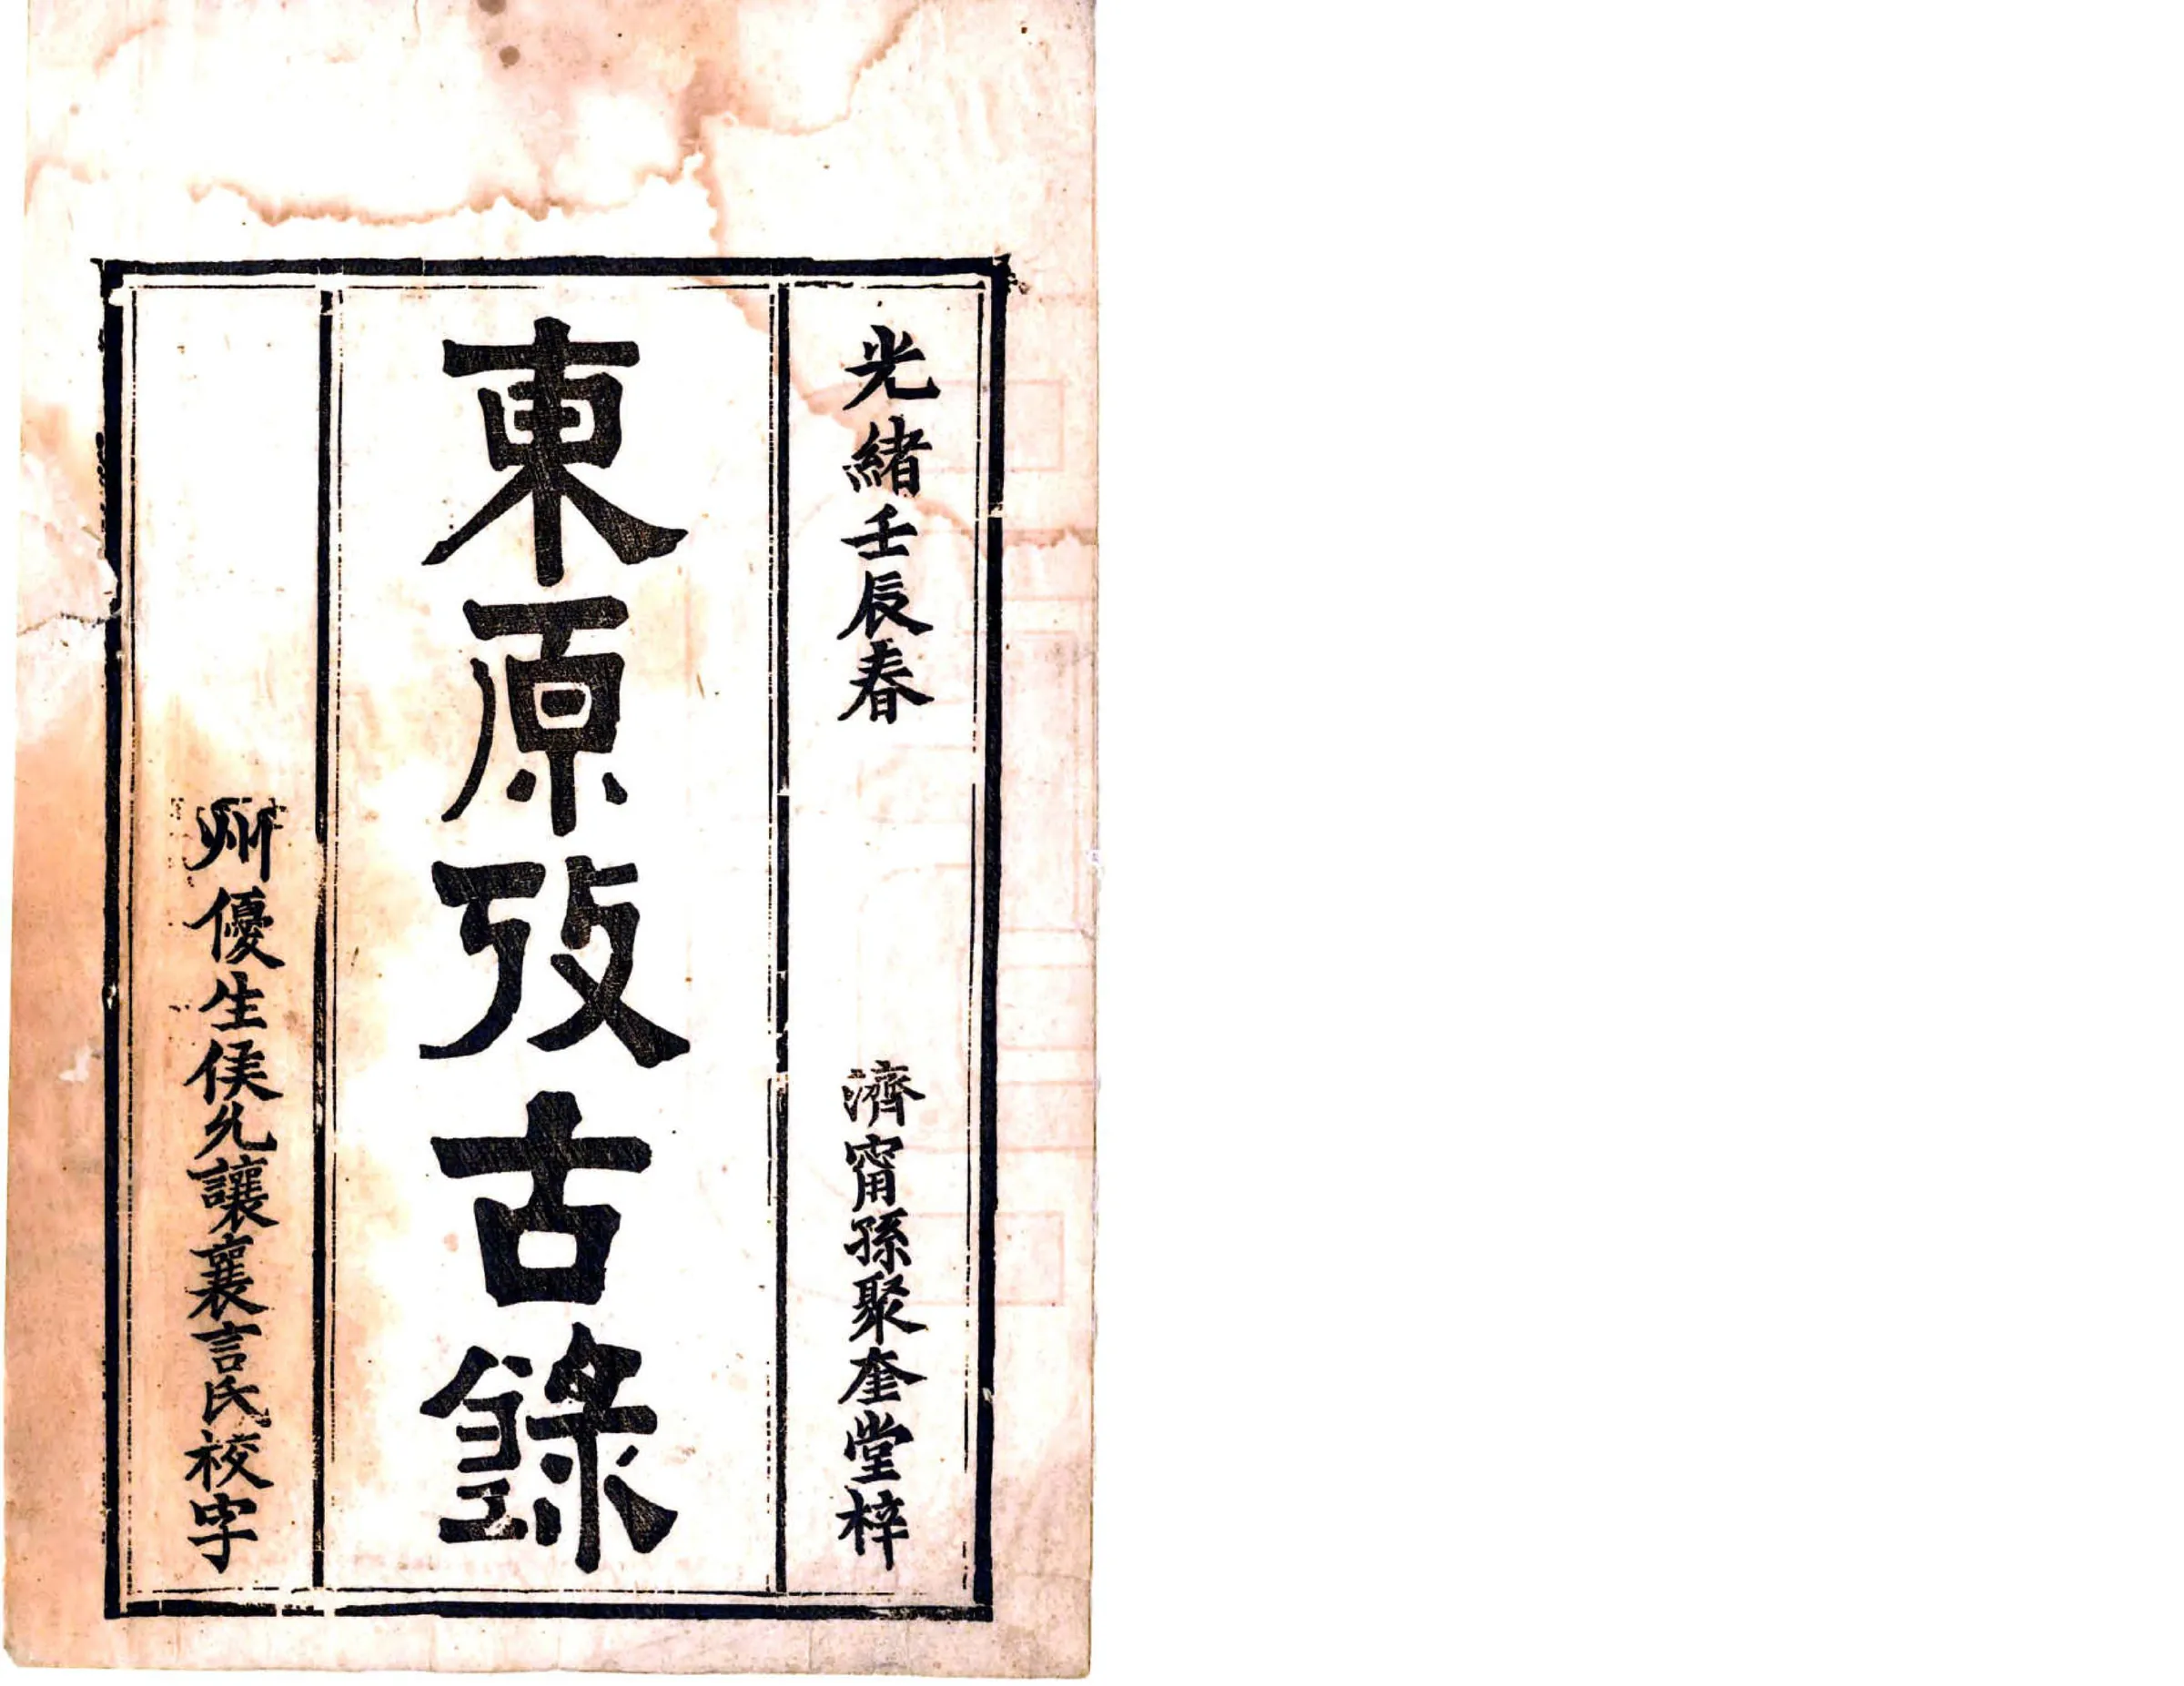 光緒壬辰春
濟甯孫聚奎堂梓
東原攷古錄
州優生侯允讓襄言氏校字